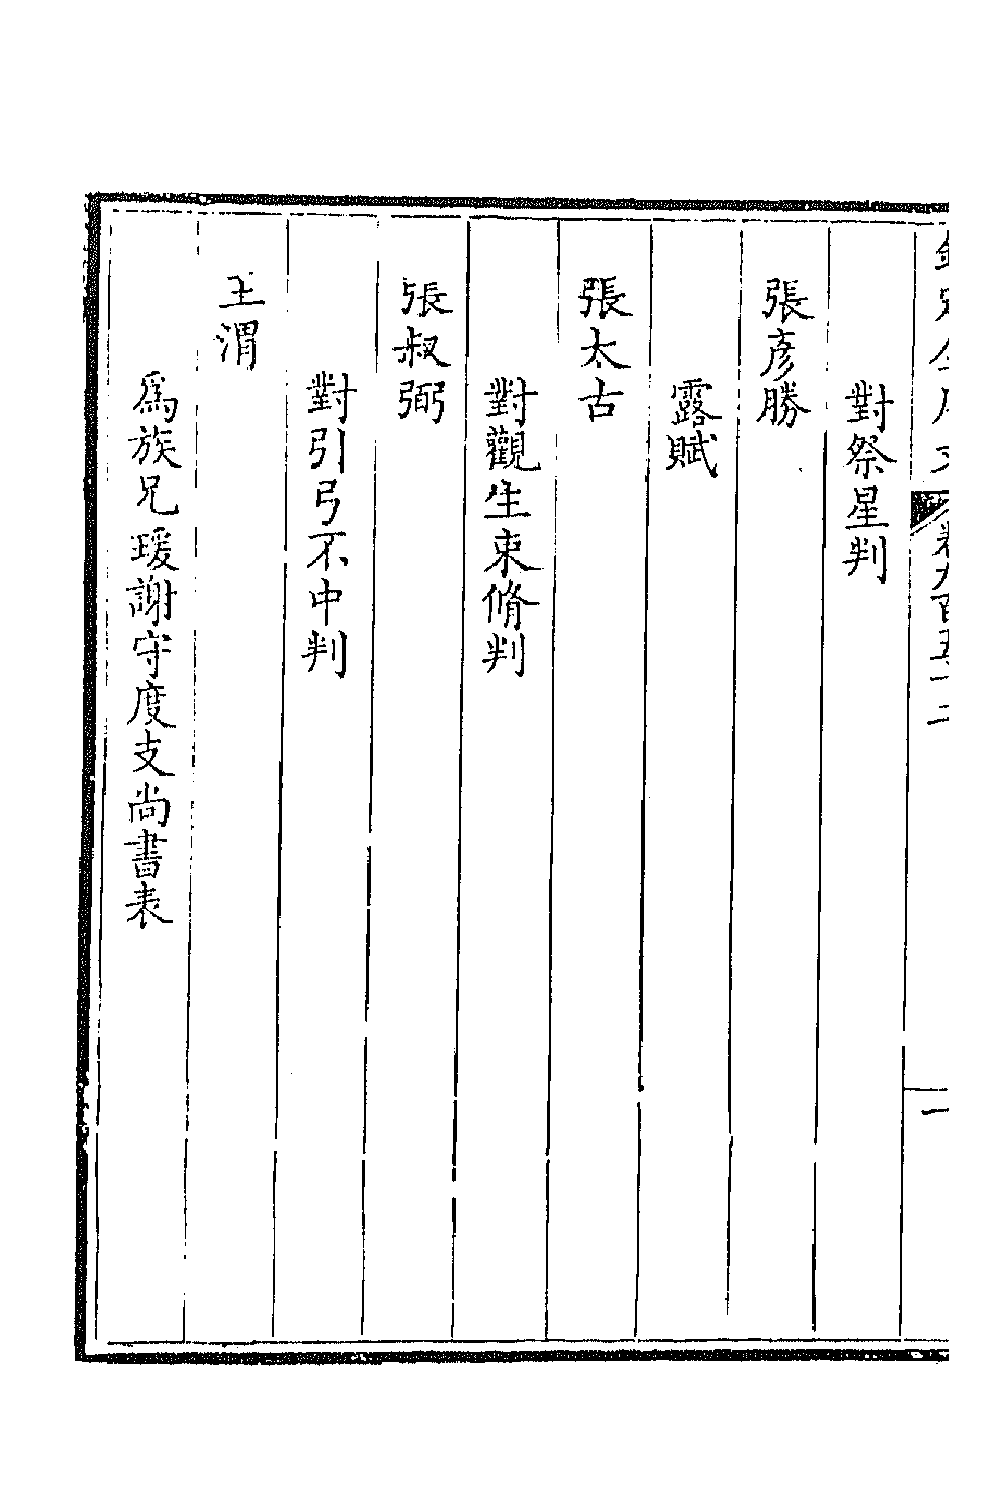 欽定全唐文 卷九百五十二 一
對祭星判
張彥勝
露賦
張太古
對觀生束脩判
張叔弼
對引弓不中判
王渭
爲族兄瑗謝守度支尚書表